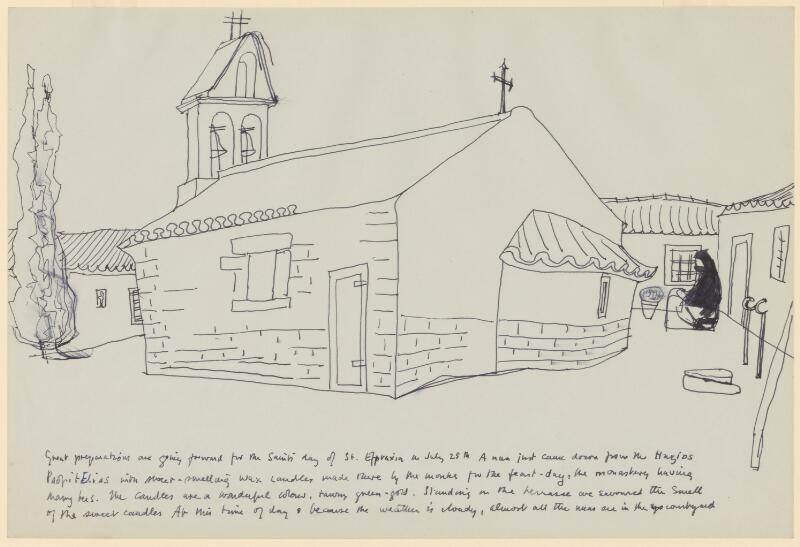 Great preparations are going forward for the Saints day of St. Efpraxia on July 25th A man just came down from the Hagios
Profit Elias with sweet-smelling wax candles made there by the monks for the feast-day, the monastery having
many bees. The candles are a wonderful colour, tawny green-gold. Standing on the terrasse we savoured the smell
of the sweet candles At this time of day & because the weather is cloudy, almost all the nuns are in the courtyard